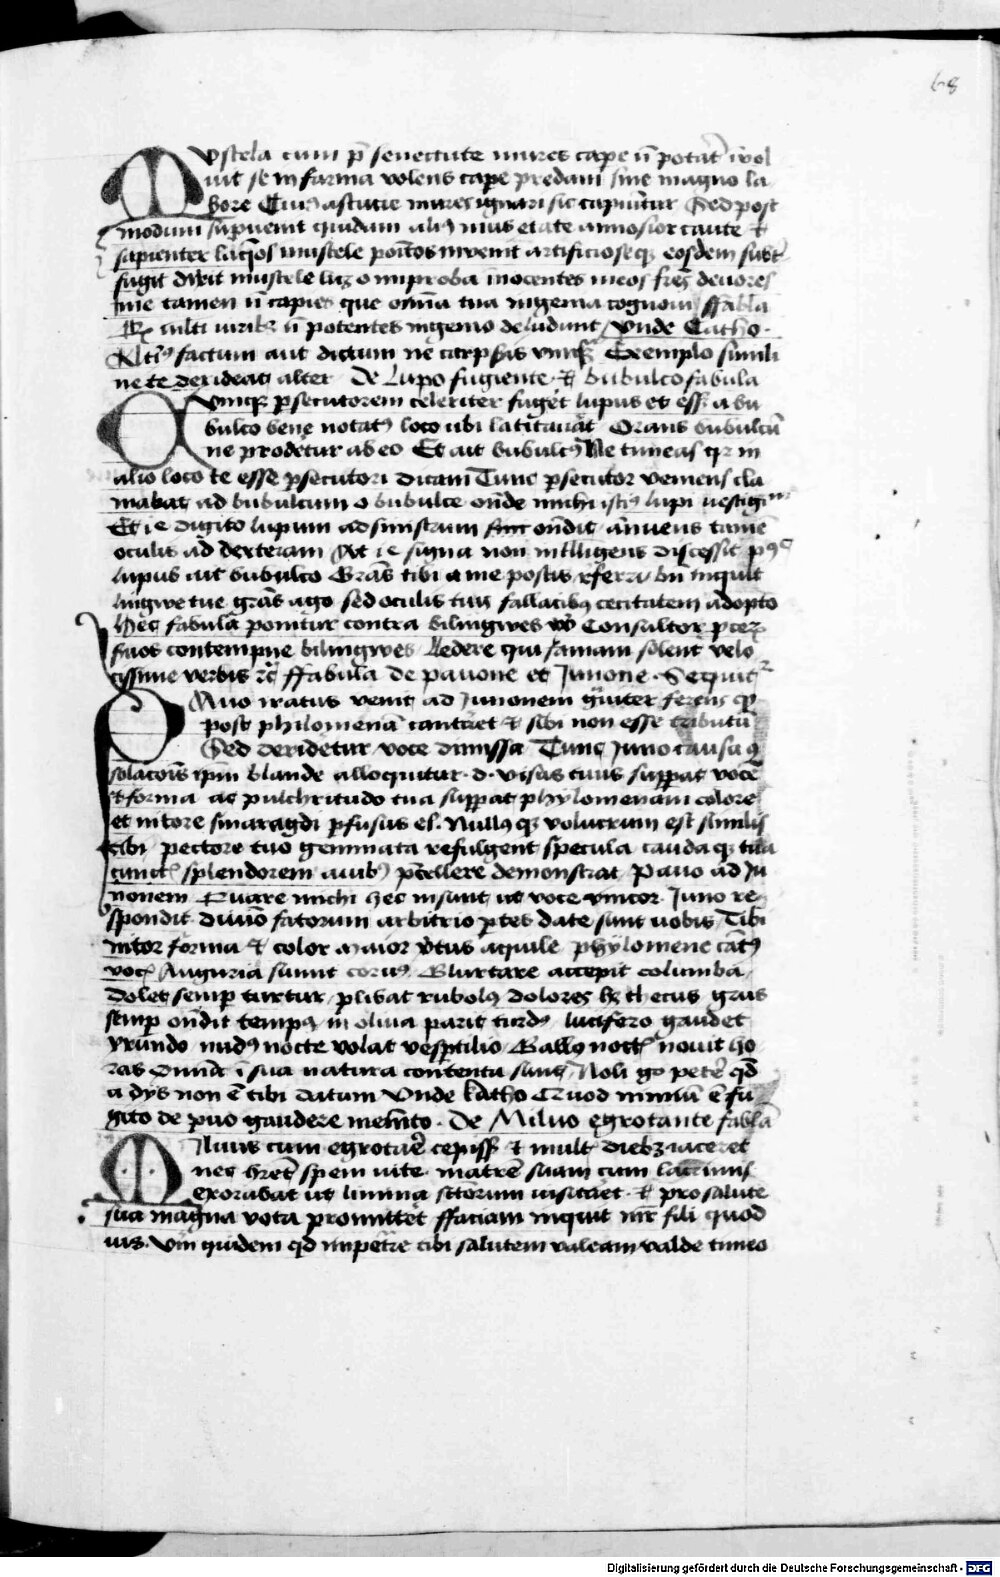 68
Mustela cum p̄ senectute mures cape n̄ potat͛ īvol
uit se in farina volens cape predam sine magno la
bore Cuiꝰ astucie mures ignari sic capiūtur Sed post
modum supuenit quidam aliꝰ mus etate annosior caute ⁊
sapienter laq̄os mustele poītos invenit artificioseqꝫ eosdem subt͛
fugit dixit mustele luꝫ o improba īnocentes meos fr̄es deuores
me tamen n̄ capies que om̄ia tua ingenia cognoui ffabla
ꝙ multi viribꝫ n̄ potentes ingenio deludunt / Vnde Catho ·
Altiꝰ factum aut dictum ne carpseris vmqꝫ Exemplo simili
ne te derideat alter · De Lupo fugiente · ⁊ bubulco fabula
Cumqꝫ ꝑsecutorem celeriter fuget lupus et ess͛ a bu
bulco bene notatꝰ loco ubi latitauat Orans bubulcū
ne prodetur ab eo Et ait bubulcꝰ Ne timeas qꝛ in
alio loco te esse ꝑsecutori dicam Tunc ꝑsecutor veniens cla
mabat ad bubulcum o bubulce on̄de michi istiꝰ lupi vestigiū
Et ie digito lupum ad sinistram on̄dit / annuens tamē
oculis ad dexteram At ie signa non intlligens discessit pꝰ
lupus ait bubulco Grās tibi a me postis referri / bn̄ inquit
lingwe tue grās ago sed oculis tuis fallacibꝰ cecitatem adopto
Hec fabula ponitur contra bilingwes Consultor
suos contempne bilingwes / Ledere qui famam solent velo
cissime verbis ⁊c ffabula de pauone et Junone · Sequit͛
Pauo iratus venit ad Junonem gͣuiter ferens qꝫ
post philomenā cantaret ⁊ sibi non esse tributū
Sed deridetur voce dimissa Tunc Juno causa
solacōis ip̄m blande alloquitur · d · visus tuus suꝑat vocē
⁊ forma ac pulchritudo tua suꝑat phylomenam colore
et nitore smaragdi ꝑfusus es · Nullꝰ qꝫ volucrum est similis
tibi / pectore tuo gemmata refulgent specula cauda qꝫ tua
cunct͛ splendorem auibꝰ p̄cellere demonstrat Pauo ad Ju
nonem Quare michi hec insunt ut voce vincor · Juno re
spondit · diuīo fatorum arbitrio ꝑtes date sunt vobis / Tibi
nitor forma ⁊ color maior v̄tus aquile phylomene cātꝰ
voc͛ Auguria sunt coruꝰ Blurtare accepit columba /
dolet semꝑ turtur / dolores grus
semꝑ on̄dit tempꝰ in oliua parit turdꝰ lucifero gaudet
yrundo nudꝰ nocte volat vesꝑtilio / Gallꝰ noct͛ nouit ho
ras ī sua natura contenta sunt / Noli go petere qd̄
a dys non ē tibi datum Vnde katho Quod nimiū ē fu
gito de ꝑuo gaudere memento · De Miluo egrotante fablā
Miluus cum egrotare cepiss͛ ⁊ mult͛ diebꝫ iaceret
nec hret͛ spem uite · matrē suam cum lacrimis
exorabat ut limina sctōrum visitaret · ⁊ pro salute
sua magna vota promittet͛ ffaciam inquit mr̄ fili quod
uis · Vm̄ quidem qd̄ impetͣre tibi salutem valeam valde timeo
Digitalisierung gefördert durch die Deutsche Forschungsgemeinschaft - DFG